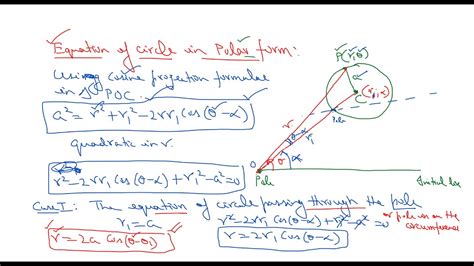 Equation of circle in Polar form:
Using cosine projection formulae
in POC.
a² = r² + r₁² - 2rr₁ cos(θ-α)
quadratic in r.
r² - 2rr₁ cos(θ-α) + r₁² - a² = 0
Case I: The equation of circle passing through the pole
r₁ = a
r² - 2rr₁ cos(θ-α) + r₁² - a² = 0
or pole is on the
circumference
r = 2a cos(θ-θ₁)
r = 2r₁ cos(θ-α)
P(r,θ)
a
C(r₁,α)
Pole
r
r₁
θ-α
O
θ
α
Pole
Initial line